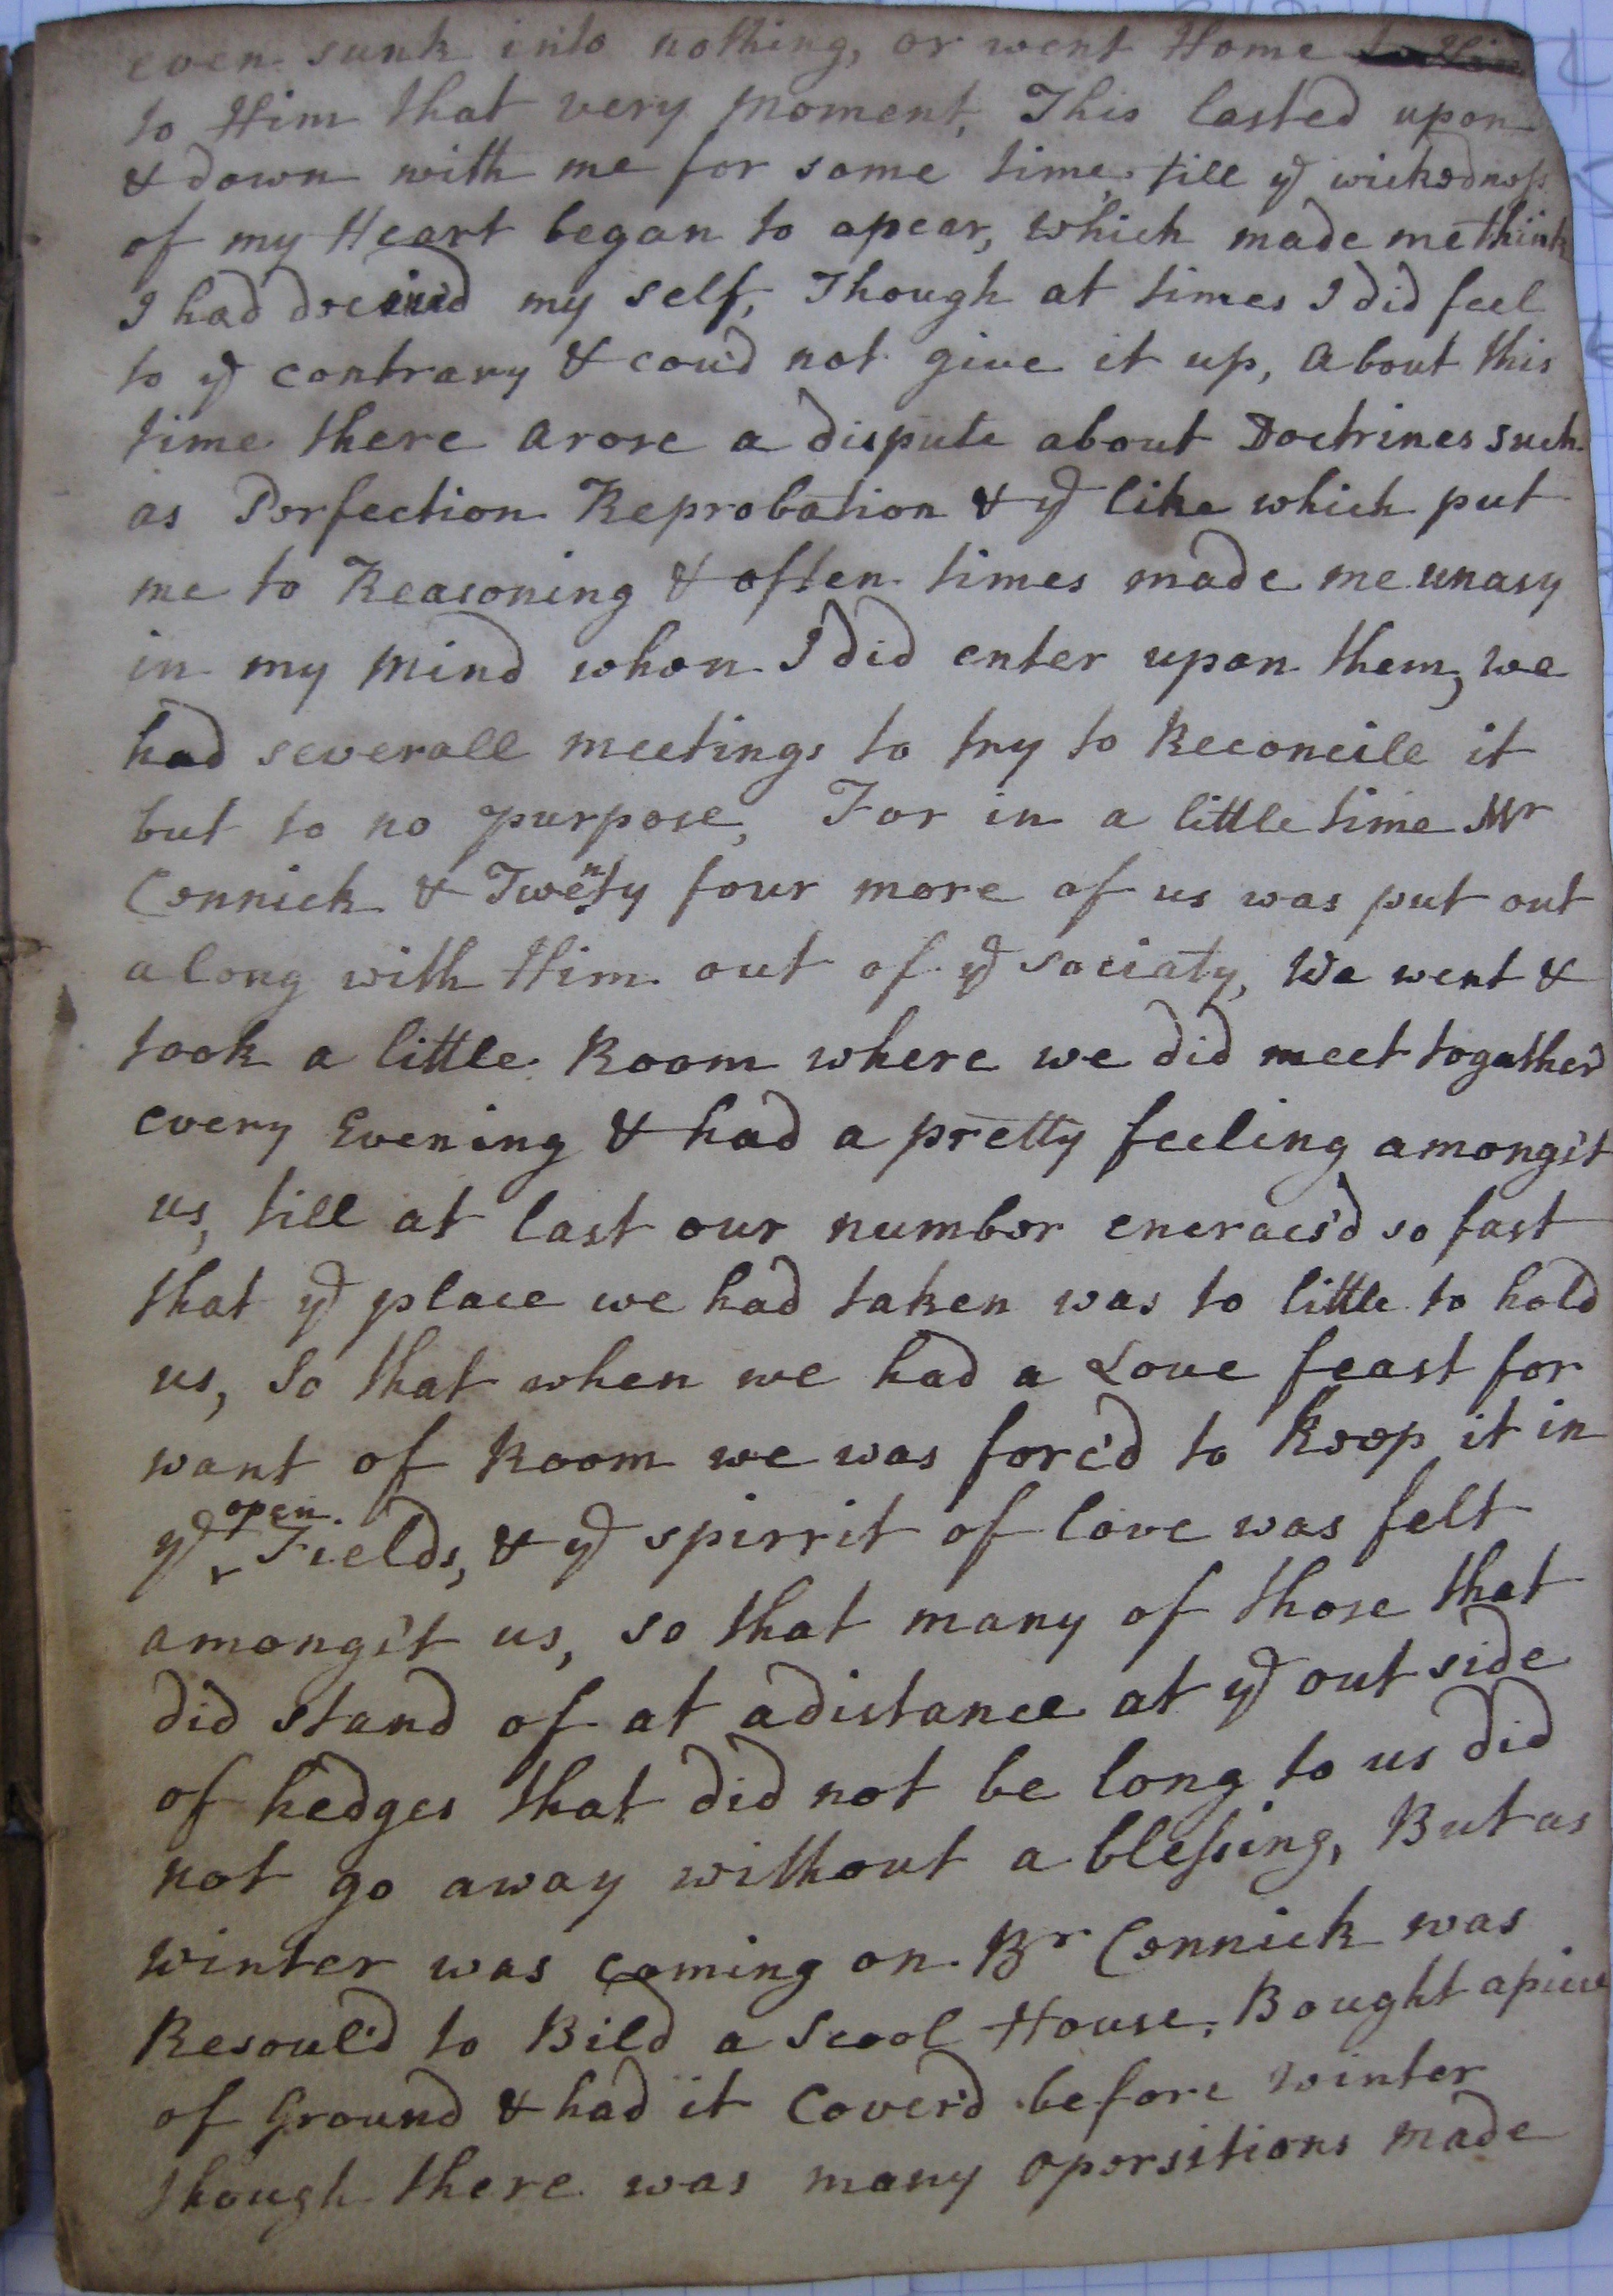 even sunk into nothing, or went Home
to Him that very moment, This lasted upon
& down with me for some time, till yᵉ wickedness
of my Heart began to apear, which made me think
I had deceived my self, Though at times I did feel
to yᵉ contrary & cou'd not give it up, about this
time there arose a dispute about Doctrines such
as Perfection Reprobation & yᵉ like which put
me to Reasoning & often times made me unasy
in my mind when I did enter upon them, we
had severall meetings to try to Reconcile it
but to no purpose, For in a little time Mr
Cennick & Twenty four more of us was put out
along with Him out of yᵉ sociaty, We went &
took a little Room where we did meet togather'd
every Evening & had a pretty feeling amongst
us, till at last our number encraes'd so fast
that yᵉ place we had taken was to little to hold
us, So that when we had a Love feast for
want of Room we was forc'd to keep it in
yᵉ open Fields, & yᵉ spirrit of love was felt
amongst us, so that many of those that
did stand of at a distance at yᵉ out side
of hedges that did not be long to us did
not go away without a blessing, But as
winter was coming on Br Cennick was
Resoul'd to Bild a Scool House, Bought a piece
of Ground & had it Cover'd before winter
though there was many opersitions made